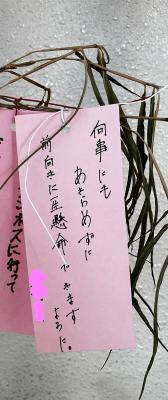 何事にも
あきらめずに
前向きに一生懸命できます
ように。
ミホズに行って